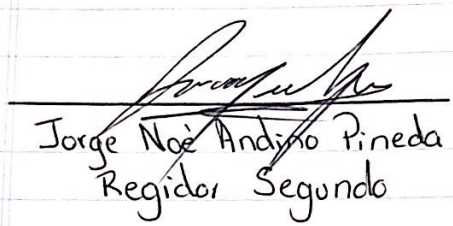 Jorge Noè Andino Pineda
Regidor Segundo